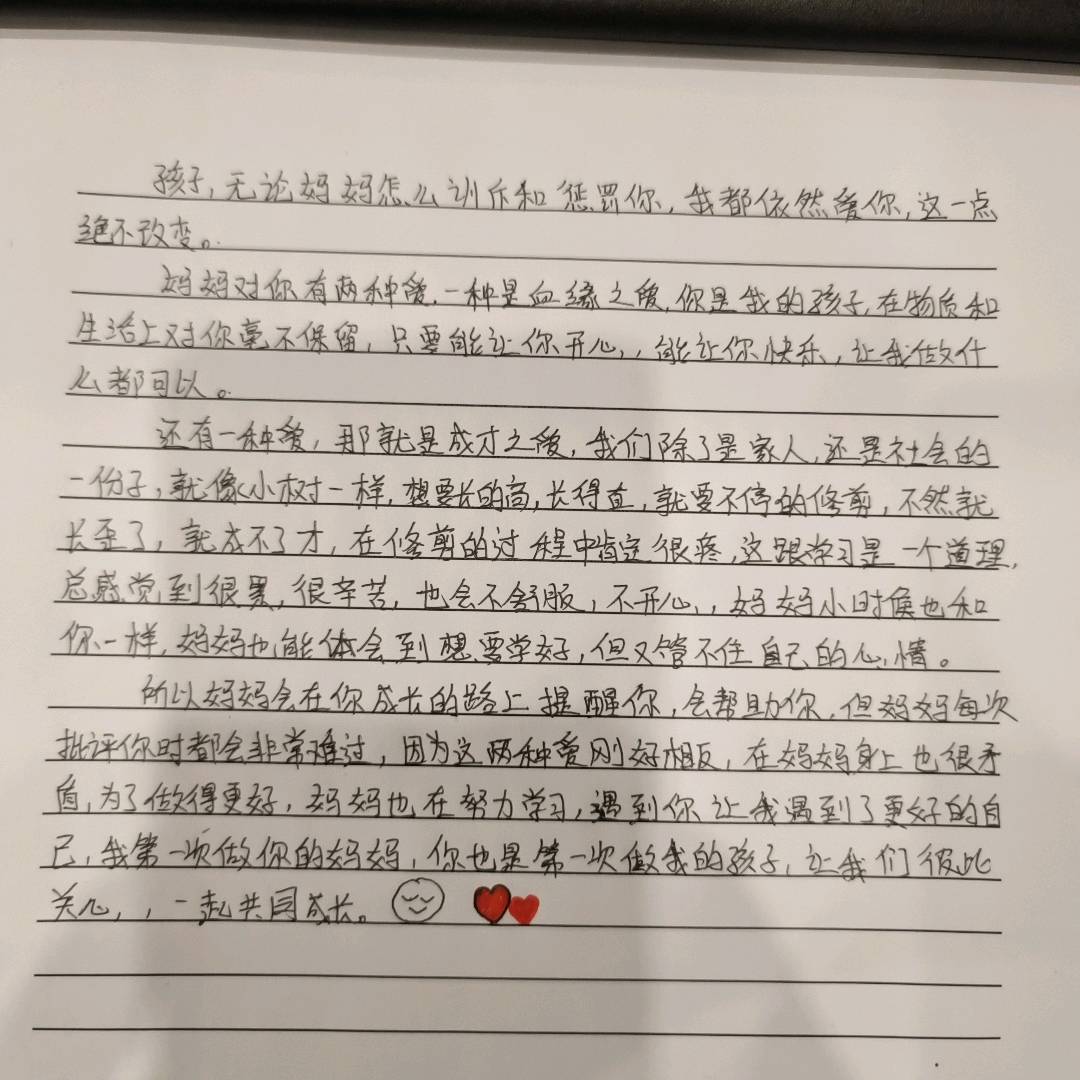 孩子，无论妈妈怎么训斥和惩罚你，我都依然爱你，这一点
绝不改变。
妈妈对你有两种爱，一种是血缘之爱，你是我的孩子，在物质和
生活上对你毫不保留，只要能让你开心，能让你快乐，让我做什
么都可以。
还有一种爱，那就是成才之爱，我们除了是家人，还是社会的
一份子，就像小树一样，想要长的高，长得直，就要不停的修剪，不然就
长歪了，就成不了才，在修剪的过程中肯定很疼，这跟学习是一个道理，
总感觉到很累，很辛苦，也会不舒服，不开心，妈妈小时候也和
你一样，妈妈也能体会到想要学好，但又管不住自己的心情。
所以妈妈会在你成长的路上提醒你，会帮助你，但妈妈每次
批评你时都会非常难过，因为这两种爱刚好相反，在妈妈身上也很矛
盾，为了做得更好，妈妈也在努力学习，遇到你让我遇到了更好的自
己，我第一次做你的妈妈，你也是第一次做我的孩子，让我们彼此
关心，一起共同成长。